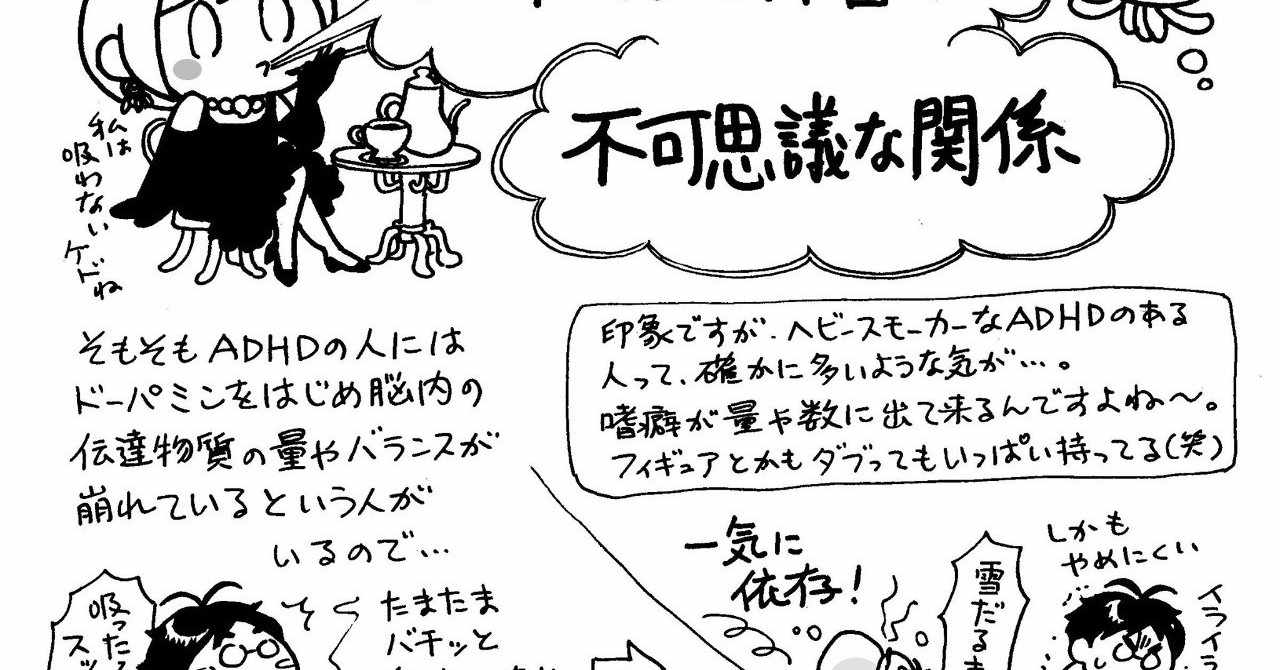 不可思議な関係
私は
吸わない
ケドね
印象ですが、ヘビースモーカーなADHDのある
人って、確かに多いような気が…。
嗜癖が量や数に出て来るんですよね〜。
フィギュアとかもダブってもいっぱい持ってる(笑)
そもそもADHDの人には
ドーパミンをはじめ脳内の
伝達物質の量やバランスが
崩れているという人が
いるので…
吸った
たまたま
バチッと
一気に
依存!
雪だるま
しかも
やめにくい
イライ